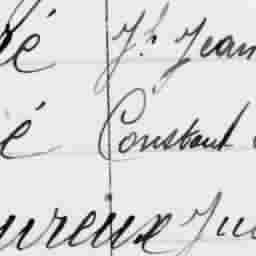 é Jh Jean
é Constant
ureux Ju